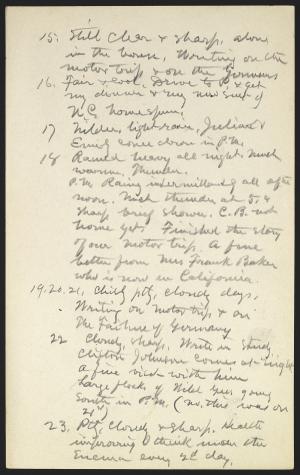 15. Still clear & sharp, alone
in the house, Writing on the
motor trip & on the Germans
16. Fair & cool, Drove to P. & get
my dinner & my new suit of
N.C. homespun.
17 Milder, light rain, Julian &
Emily come down in P.M.
18 Rained heavy all night. Much
warmer, Thunder.
P.M. Rainy intermittently all after
noon. Much thunder at 5. &
sharp brief shower. C.B. not
home yet. Finished the story
of our motor trip. A fine
letter from Mrs Frank Baker
who is now in California.
19.20.21, Chilly ptly, cloudy days,
Writing on motor trip, & on
the Failure of Germany
22 Cloudy, sharp, Write in study
Clifton Johnson comes at night
A fine visit with him
Large flock of Wild Geese going
South in P.M. (no, this was on
21st)
23. Ptly Cloudy & sharp. Health
improving I think under the
Enema every 2d day.